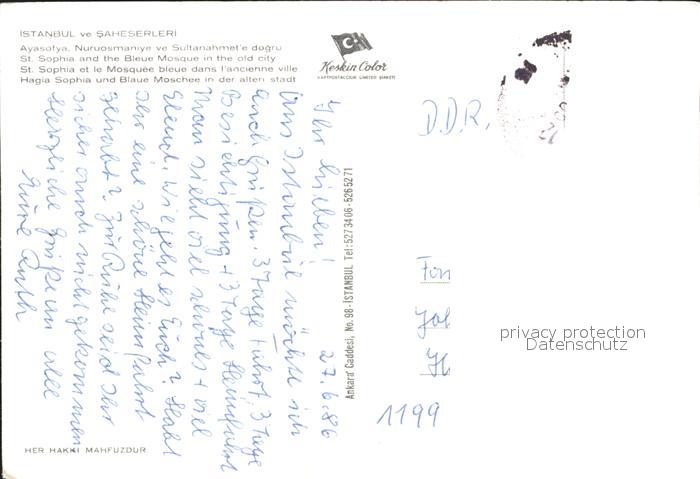 İSTANBUL ve ŞAHESERLERİ
Ayasofya, Nuruosmaniye ve Sultanahmet'e doğru
St. Sophia and the Bleue Mosque in the old city
St. Sophia et le Mosquée bleue dans l'ancienne ville
Hagia Sophia und Blaue Moschee in der alten stadt
Keskin Color
KARTPOSTALCILIK LIMITED ŞİRKETİ
27.6.86
Ihr Lieben!
Aus Istanbul möchte ich
Euch grüßen. 3 Tage Fahrt, 3 Tage
Besichtigung + 3 Tage Heimfahrt
Man sieht viel schönes + viel
Elend. Wie geht es Euch? Habt
Ihr eine schöne Heimfahrt
gehabt? Zur Ruhe seid Ihr
sicher auch nicht gekommen
Herzliche Grüße an alle
Eure Ruth
Ankara Caddesi, No. 98-İSTANBUL Tel: 5273406-5265271
D.D.R.
1199
privacy protection
Datenschutz
HER HAKKI MAHFUZDUR